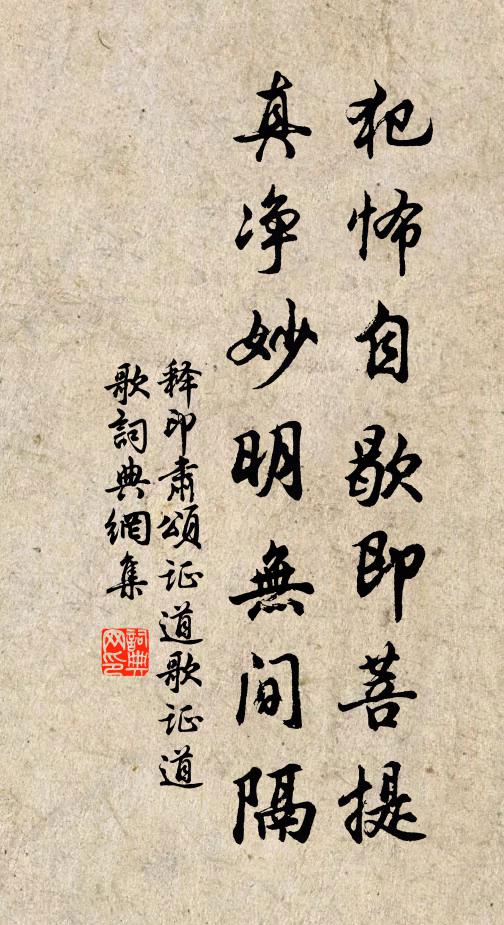 犯怖自歇即菩提
真净妙明無间隔
释印肃頌证道歌证道
歌詞典網集
詞典
网印